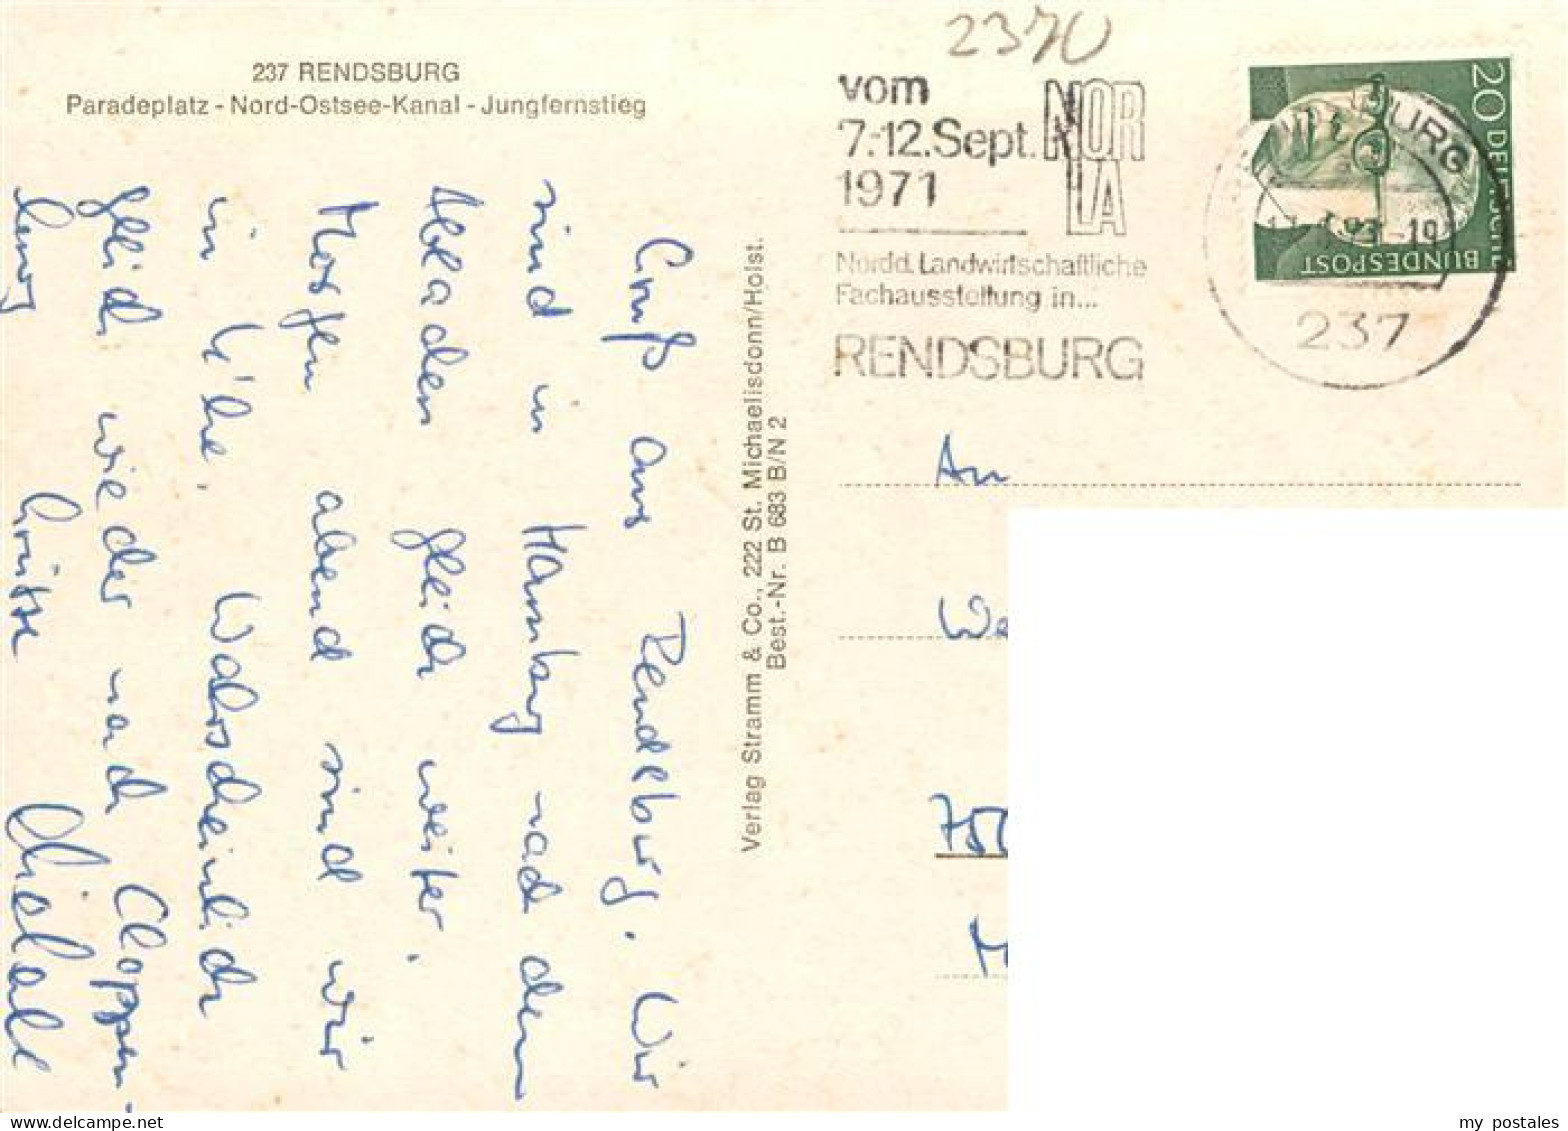 2370
237 RENDSBURG
Paradeplatz - Nord-Ostsee-Kanal - Jungfernstieg
vom
7.-12.Sept.
1971
NOR
LA
Nordd. Landwirtschaftliche
Fachausstellung in...
RENDSBURG
20 DEUTSCHE
BUNDESPOST
BURG
-19
237
Gruß aus Rendsburg. Wir
sind in Hamburg nach dem
Abladen gleich weiter.
Morgen abend sind wir
in K'he. Wahrscheinlich
gleich wieder nach Cloppen-
burg Grüsse
Verlag Stramm & Co., 222 St. Michaelisdonn/Holst.
Best.-Nr. B 683 B/N 2
An
We
75
my postales